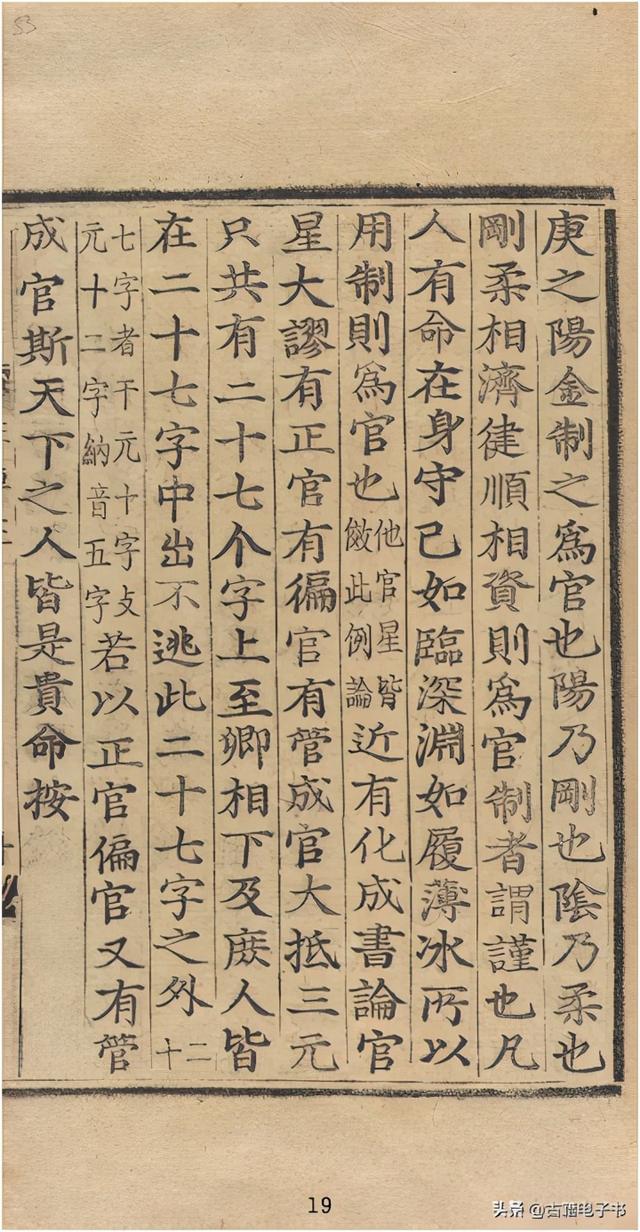 庚之陽金制之爲官也陽乃剛也隂乃柔也
剛柔相濟健順相資則爲官制者謂謹也凡
人有命在身守己如臨深淵如履薄冰所以
用制則爲官也他官星皆倣此例論近有化成書論官
星大謬有正官有徧官有管成官大抵三元
只共有二十七个字上至卿相下及庶人皆
在二十七字中出不逃此二十七字之外二十
七字者干元十字支元十二字納音五字若以正官偏官又有管
成官斯天下之人皆是貴命按
53
19
头条@古籍电子书